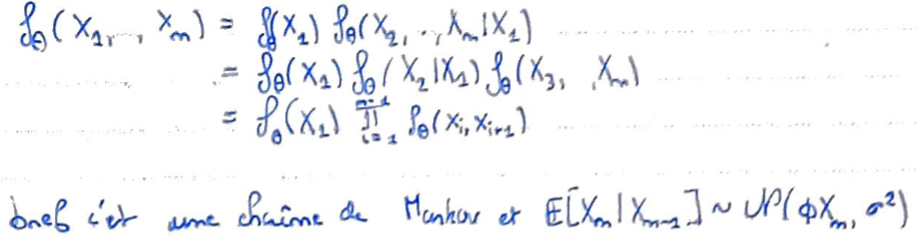 f_θ(X_1, .., X_n) = f_θ(X_1) f_θ(X_2, .., X_n | X_1)
= f_θ(X_1) f_θ(X_2 | X_1) f_θ(X_3, .., X_n)
= f_θ(X_1) ∏_{i=1}^{n-1} f_θ(X_i, X_{i+1})
bref c'est une chaîne de Markov et E[X_n | X_{n-1}] ~ N(ϕX_n, σ²)